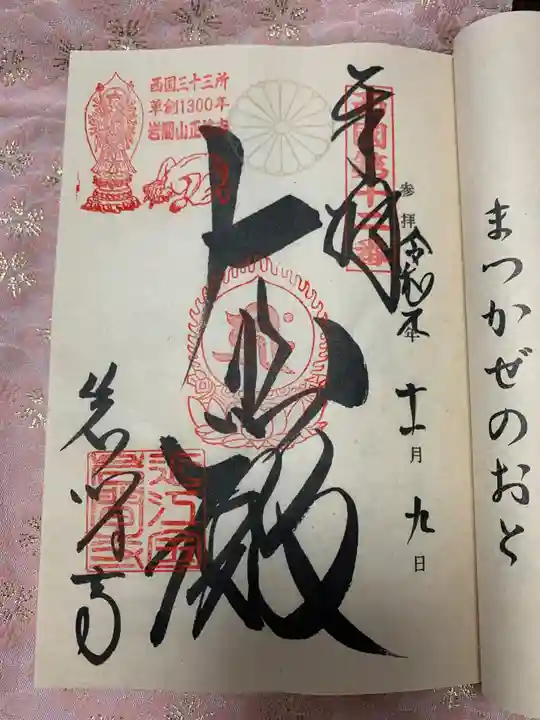 まつかぜのおと
西国第十二番
奉拝
参拝 令和元年 十一月 九日
大悲殿
西国三十三所
草創1300年
岩間山正法寺
近江国
岩間寺